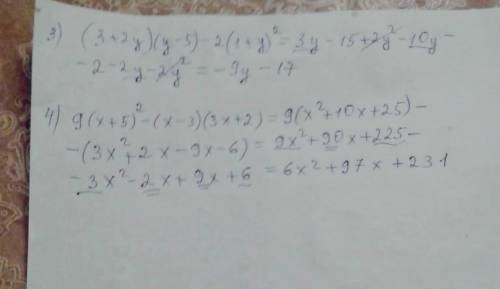 3) (3+2y)(y-5)-2(1+y)²=3y-15+2y²-10y-
-2-2y-2y²=-9y-17
4) 9(x+5)²-(x-3)(3x+2)=9(x²+10x+25)-
-(3x²+2x-9x-6)=9x²+90x+225-
-3x²-2x+9x+6=6x²+97x+231